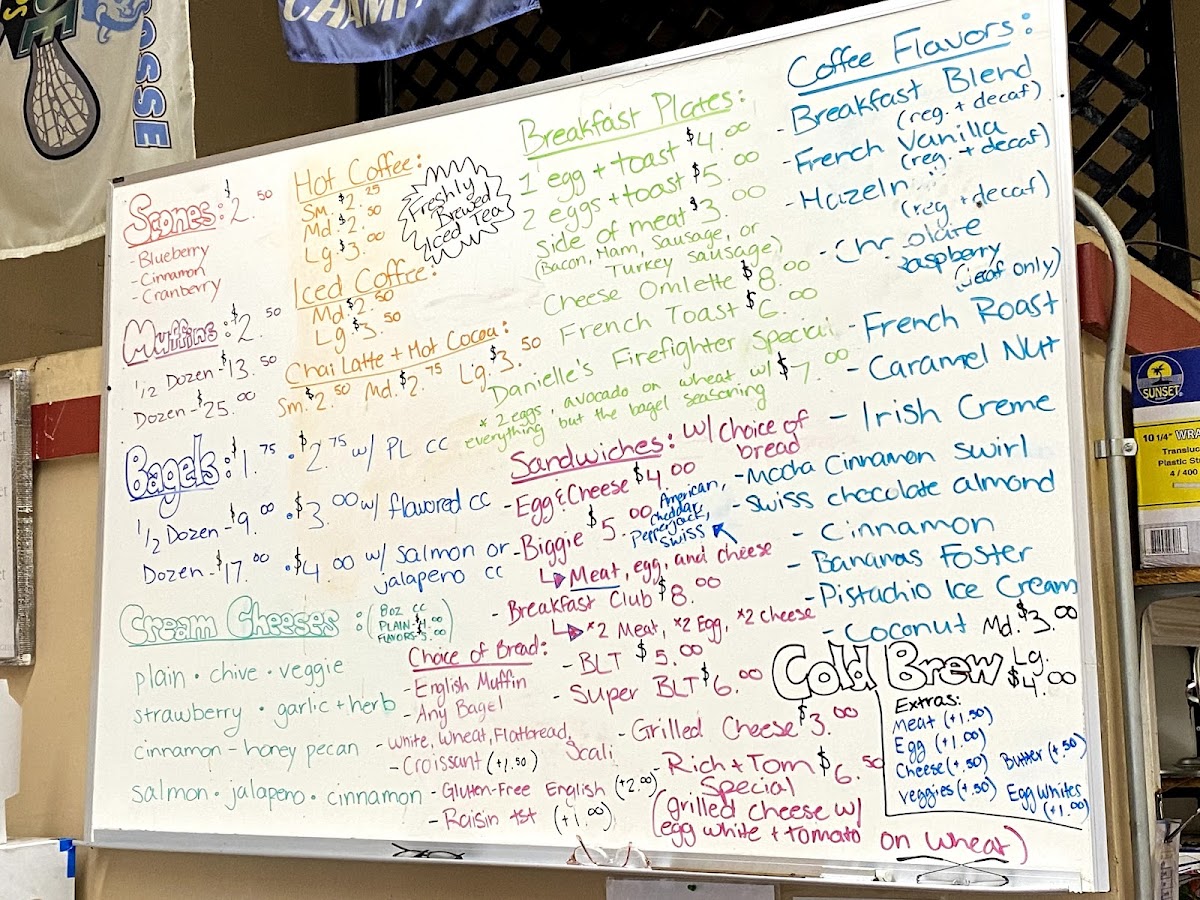 CHAMP
OSSE
Scones: $2.50
- Blueberry
- Cinnamon
- Cranberry
Muffins: $2.50
1/2 Dozen - $13.50
Dozen - $25.00
Bagels: $1.75 • $2.75 w/ PL cc
1/2 Dozen - $9.00 • $3.00 w/ flavored cc
Dozen - $17.00 • $4.00 w/ salmon or
jalapeno cc
Cream Cheeses: (8oz cc
PLAIN $4.00
FLAVORS $5.00)
plain • chive • veggie
strawberry • garlic + herb
cinnamon - honey pecan
salmon • jalapeno • cinnamon
Hot Coffee:
Sm. $2.25
Md. $2.50
Lg. $3.00
Freshly
Brewed
Iced Tea
Iced Coffee:
Md. $2.50
Lg. $3.50
Chai Latte + Hot Cocoa:
Sm. $2.50 Md. $2.75 Lg. $3.50
Breakfast Plates:
1 egg + toast $4.00
2 eggs + toast $5.00
side of meat $3.00
(Bacon, Ham, Sausage, or
Turkey sausage)
Cheese Omlette $8.00
French Toast $6.00
Danielle's Firefighter Special
* 2 eggs, avocado on wheat w/ $7.00
everything but the bagel seasoning
Sandwiches: w/ choice of
bread
- Egg & Cheese $4.00
- Biggie $5.00
American,
cheddar,
Pepperjack,
Swiss
Meat, egg, and cheese
- Breakfast Club $8.00
*2 Meat, *2 Egg, *2 cheese
- BLT $5.00
- Super BLT $6.00
- Grilled Cheese $3.00
- Rich + Tom $6.50
Special
(grilled cheese w/
egg white + tomato on wheat)
Choice of Bread:
- English Muffin
- Any Bagel
- White, Wheat, Flatbread,
Scali
- Croissant (+1.50)
- Gluten-Free English (+2.00)
- Raisin tst (+1.00)
Coffee Flavors:
- Breakfast Blend
(reg. + decaf)
- French Vanilla
(reg. + decaf)
- Hazeln
(reg + decaf)
(decaf only)
- French Roast
- Caramel Nut
- Irish Creme
- Mocha Cinnamon swirl
- Swiss chocolate almond
- Cinnamon
- Bananas Foster
- Pistachio Ice Cream
- Coconut
Cold Brew Md. $3.00
Lg. $4.00
Extras:
Meat (+1.50)
Egg (+1.00)
Cheese (+.50) Butter (+.50)
veggies (+.50) Egg Whites
(+1.00)
SUNSET
10 1/4" WRA
Transluc
Plastic St
4 / 400